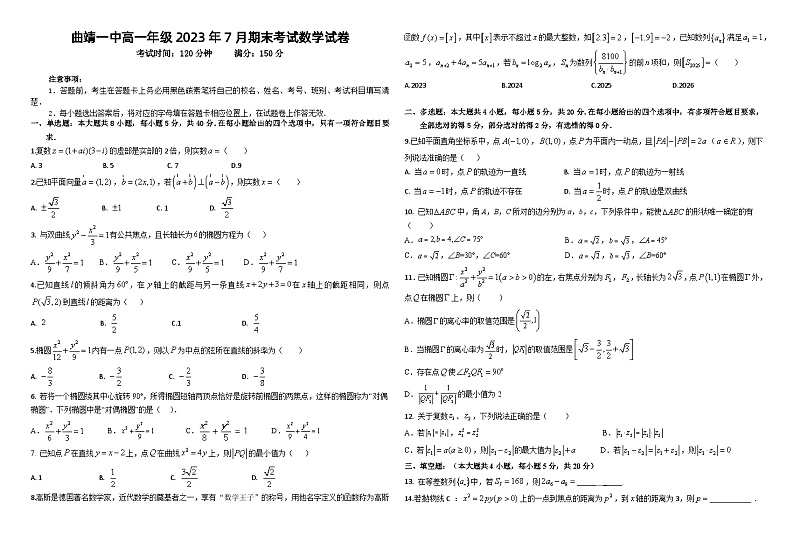 曲靖一中高一年级 2023 年 7 月期末考试数学试卷
考试时间：120 分钟 满分：150 分
注意事项：
1．答题前，考生在答题卡上务必用黑色碳素笔将自己的校名、姓名、考号、班别、考试科目填写清
楚．
2．每小题选出答案后，将对应的字母填在答题卡相应位置上，在试题卷上作答无效．
一、单选题：本大题共 8 小题，每小题 5 分，共 40 分．在每小题给出的四个选项中，只有一项符合题目要
求．
1.复数 z=(1+ai)(3−i) 的虚部是实部的 2 倍，则实数 a=（ ）
A. 3 B. 5 C. 7 D.9
2.已知平面向量 a=(1,2)，b=(2x,1)，若 (a+b)⊥(a−b)，则实数 x=（ ）
A. ±√3/2 B. ±1 C. 1 D. √3/2
3. 与双曲线 y²−x²/3=1 有公共焦点，且长轴长为 6 的椭圆方程为（ ）
A．y²/9+x²/7=1 B．y²/9+x²/5=1 C．x²/9+y²/5=1 D．x²/9+y²/7=1
4.已知直线 l 的倾斜角为 60°，在 y 轴上的截距与另一条直线 x+2y+3=0 在 x 轴上的截距相同，则点
P(√3,2) 到直线 l 的距离为（ ）
A. 2 B. 5/2 C.1 D. 5/4
5.椭圆 x²/12+y²/9=1 内有一点 P(1,2)，则以 P 为中点的弦所在直线的斜率为（ ）
A. −8/3 B. −3/2 C. −2/3 D. −3/8
6. 若将一个椭圆绕其中心旋转 90°，所得椭圆短轴两顶点恰好是旋转前椭圆的两焦点，这样的椭圆称为“对偶
椭圆”．下列椭圆中是“对偶椭圆”的是（ ）．
A．x²/6+y²/3=1 B．x²+y²/9=1 C．x²/8+y²/5=1 D．x²/9+y²/4=1
7. 已知点 P 在直线 y=x−2 上，点 Q 在曲线 x²=4y 上，则 |PQ| 的最小值为（ ）
A. 1 B. 1/2 C. 3√2/2 D. √2/2
8.高斯是德国著名数学家，近代数学的奠基者之一，享有“数学王子”的称号，用他名字定义的函数称为高斯
函数 f(x)=[x]，其中 [x] 表示不超过 x 的最大整数，如 [2.3]=2，[−1.9]=−2，已知数列 {aₙ} 满足 a₁=1，
a₂=5，aₙ₊₂+4aₙ=5aₙ₊₁，若 bₙ=log₂aₙ，Sₙ 为数列 {8100/(bₙ·bₙ₊₁)} 的前 n 项和，则 [S₂₀₂₅]=（ ）
A.2023 B.2024 C.2025 D.2026
二、多选题：本大题共 4 小题，每小题 5 分，共 20 分．在每小题给出的四个选项中，有多项符合题目要求，
全部选对的得 5 分，部分选对的得 2 分，有选错的得 0 分．
9.已知平面直角坐标系中，点 A(−1,0)，B(1,0)，点 P 为平面内一动点，且 |PA|−|PB|=2a（a∈R），则下
列说法准确的是（ ）
A. 当 a=0 时，点 P 的轨迹为一直线 B. 当 a=1 时，点 P 的轨迹为一射线
C. 当 a=−1 时，点 P 的轨迹不存在 D. 当 a=1/2 时，点 P 的轨迹是双曲线
10. 已知△ABC 中，角 A，B，C 所对的边分别为 a，b，c，下列条件中，能使△ABC 的形状唯一确定的有
（ ）
A．a=2,b=4,∠C=75° B．a=√2，b=√3，∠A=45°
C．a=√2，∠B=30°，∠C=60° D．a=√2，b=√3，∠B=60°
11．已知椭圆 Γ：x²/a²+y²/b²=1(a>b>0) 的左，右焦点分别为 F₁，F₂，长轴长为 2√3，点 P(1,1) 在椭圆 Γ 外，
点 Q 在椭圆 Γ 上，则（ ）
A．椭圆 Γ 的离心率的取值范围是 (√2/2,1)
B．当椭圆 Γ 的离心率为 √3/2 时，|QF₁| 的取值范围是 [√3−3/2,3/2+√3]
C．存在点 Q 使 ∠F₂QF₁=90°
D．1/|QF₁|+1/|QF₂| 的最小值为 2
12. 关于复数 z₁、z₂，下列说法正确的是（ ）
A．若 |z₁|=|z₂|，z₁²=z₂² B．|z₁·z₂|=|z₁|·|z₂|
C．若 |z₁|=a(a≥0)，则 |z₁−z₂| 的最大值为 |z₂|+a D．若 |z₁−z₂|=|z₁+z₂|，则 |z₁·z₂|=0
三、填空题：（本大题共 4 小题，每小题 5 分，共 20 分）
13. 在等差数列 {aₙ} 中，若 S₇=168，则 2a₆−a₈=________．
14.若抛物线 C ：x²=2py(p>0) 上的一点到焦点的距离为 p²，到 x 轴的距离为 3，则 p=________．